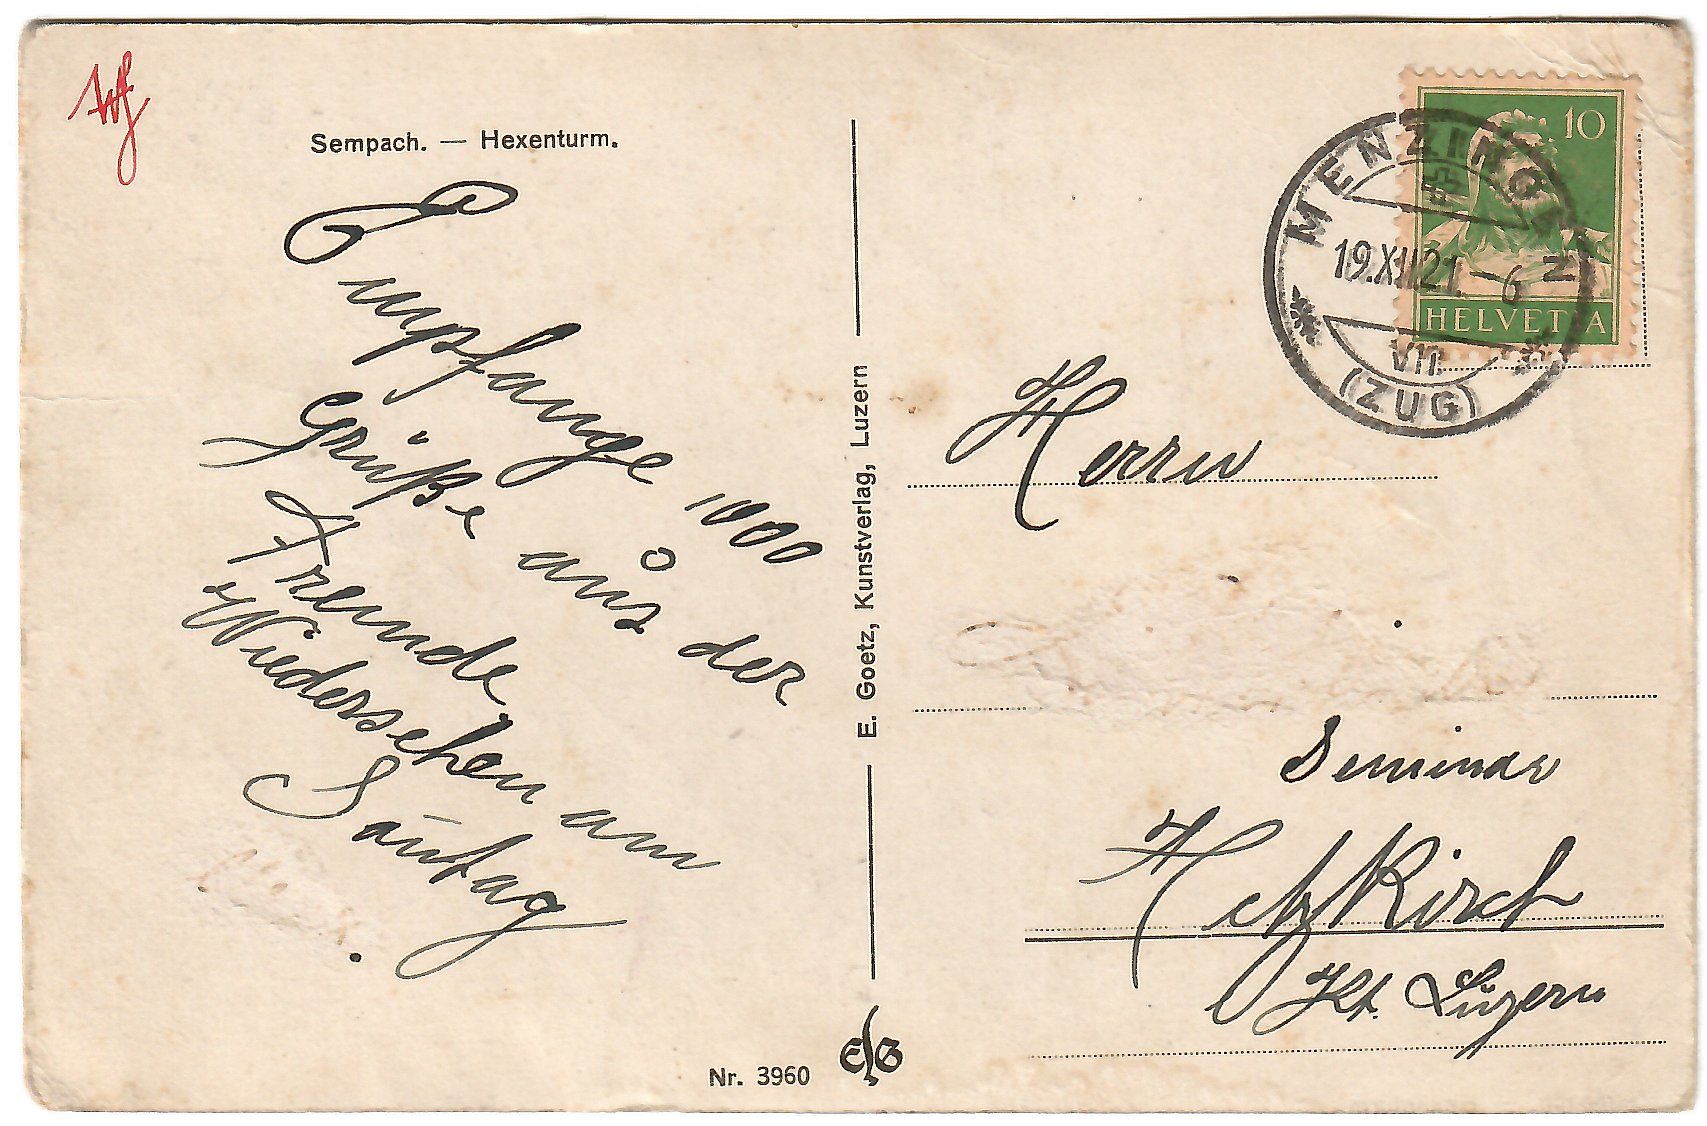 Sempach. — Hexenturm.
Empfange 1000
Grüße aus der
Fremde
Wiedersehen am
Sontag
E. Goetz, Kunstverlag, Luzern
Nr. 3960
EG
10
HELVETIA
MENZINGEN
19.XII.21.-6
VII
(ZUG)
Herrn
Seminar
Hitzkirch
Kt. Luzern